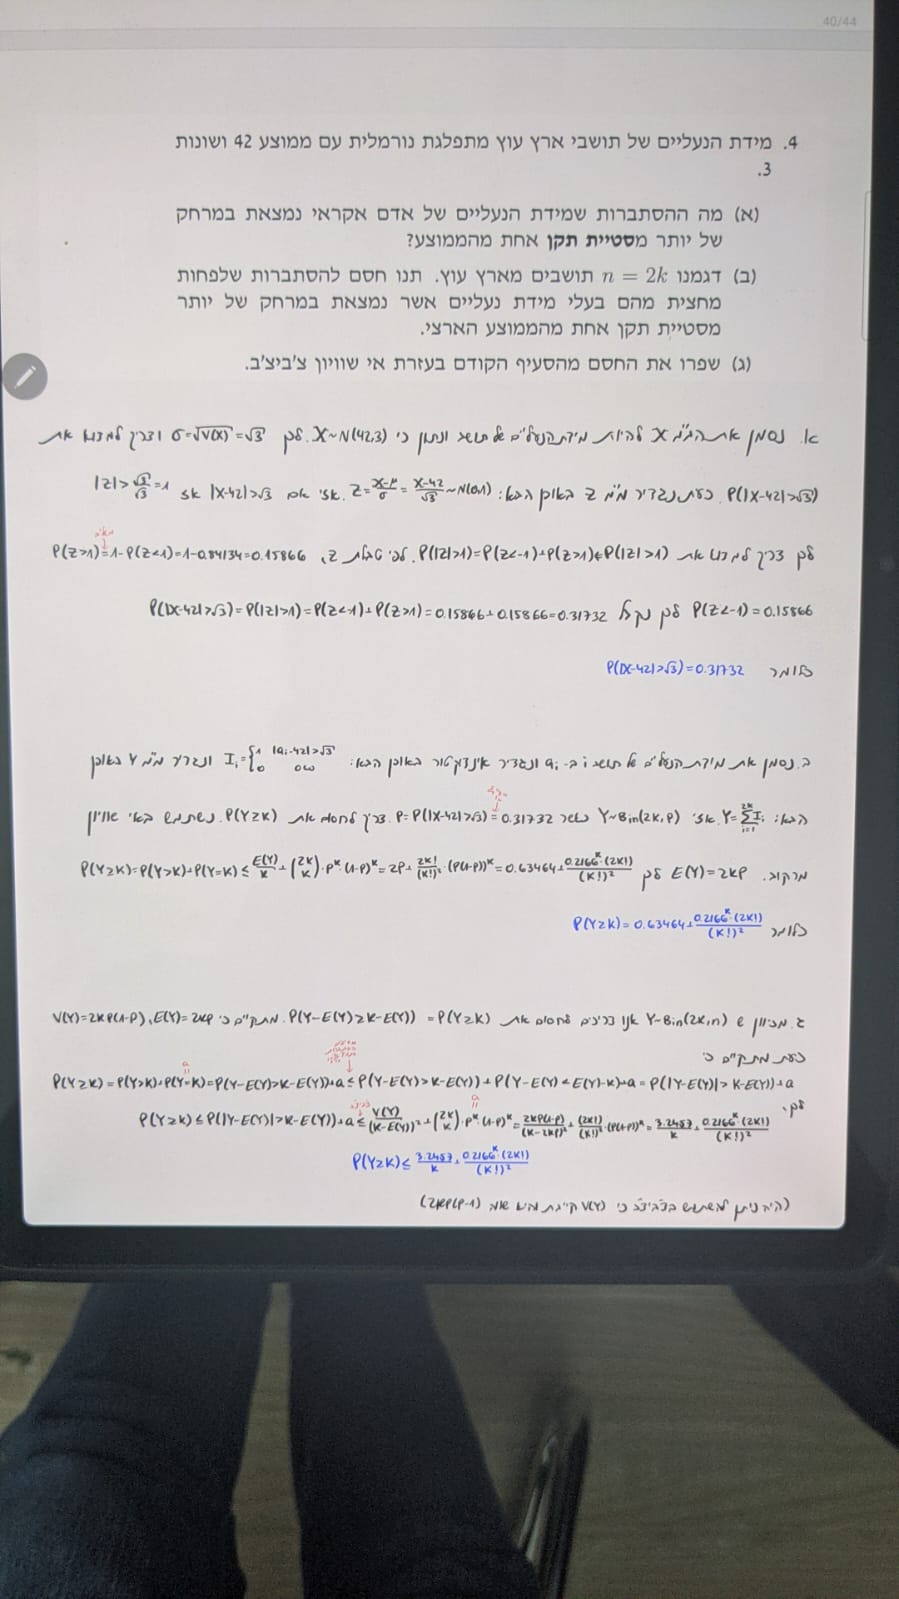 40/44
4. מידת הנעליים של תושבי ארץ עוץ מתפלגת נורמלית עם ממוצע 42 ושונות
3.
(א) מה ההסתברות שמידת הנעליים של אדם אקראי נמצאת במרחק
של יותר מסטיית תקן אחת מהממוצע?
(ב) דגמנו n = 2k תושבים מארץ עוץ. תנו חסם להסתברות שלפחות
מחצית מהם בעלי מידת נעליים אשר נמצאת במרחק של יותר
מסטיית תקן אחת מהממוצע הארצי.
(ג) שפרו את החסם מהסעיף הקודם בעזרת אי שוויון צ'ביצ'ב.
א. נסמן את המ"מ X להיות מידת הנעליים של תושב ונתון כי X~N(42,3). לכן σ=√V(X)=√3 וצריך למצוא את
P(|X-42|>√3). כעת נגדיר מ"מ Z באופן הבא: Z=(X-μ)/σ=(X-42)/√3~N(0,1). אזי אם |X-42|>√3 אז |Z|>√3/√3=1
לכן צריך למצוא את P(|Z|>1)=P(Z<-1)+P(Z>1) P(|Z|>1). לפי טבלת Z, P(Z>1)=1-P(Z<1)=1-0.84134=0.15866
P(Z<-1)=0.15866 לכן נקבל P(|X-42|>√3)=P(|Z|>1)=P(Z<-1)+P(Z>1)=0.15866+0.15866=0.31732
כלומר P(|X-42|>√3)=0.31732
ב. נסמן את מידת הנעליים של תושב i ב-ai ונגדיר אינדיקטור באופן הבא: Ii={1 |ai-42|>√3 0 ונגדיר מ"מ Y באופן
הבא: Y=Σ Ii אזי Y~Bin(2k,p) כאשר p=P(|X-42|>√3)=0.31732. צריך לחסום את P(Y≥k). נשתמש באי שוויון
מרקוב. E(Y)=2kp לכן P(Y≥k)=P(Y>k)+P(Y=k)≤E(Y)/k+(2k k)·p^k·(1-p)^k=2p+2k!/(k!)²·(p(1-p))^k=0.63464+0.2166^k·(2k!)/(k!)²
כלומר P(Y≥k)=0.63464+0.2166^k·(2k!)/(k!)²
ג. מכיוון ש Y~Bin(2k,n) אנו צריכים לחסום את P(Y-E(Y)≥k-E(Y))=P(Y≥k). מתקיים כי V(Y)=2kp(1-p), E(Y)=2kp
כעת מתקיים כי
P(Y≥k)=P(Y>k)+P(Y=k)=P(Y-E(Y)>k-E(Y))+a≤P(Y-E(Y)>k-E(Y))+P(Y-E(Y)<E(Y)-k)+a=P(|Y-E(Y)|>k-E(Y))+a
לכן, P(Y≥k)≤P(|Y-E(Y)|>k-E(Y))+a≤V(Y)/(k-E(Y))²+(2k k)·p^k·(1-p)^k=2kp(1-p)/(k-2kp)²+(2k!)/(k!)²·(p(1-p))^k=3.2457/k+0.2166^k·(2k!)/(k!)²
P(Y≥k)≤3.2457/k+0.2166^k·(2k!)/(k!)²
(היה ניתן להשתמש בצ'ביצ'ב כי V(Y) קיימת והיא שווה 2kp(p-1))